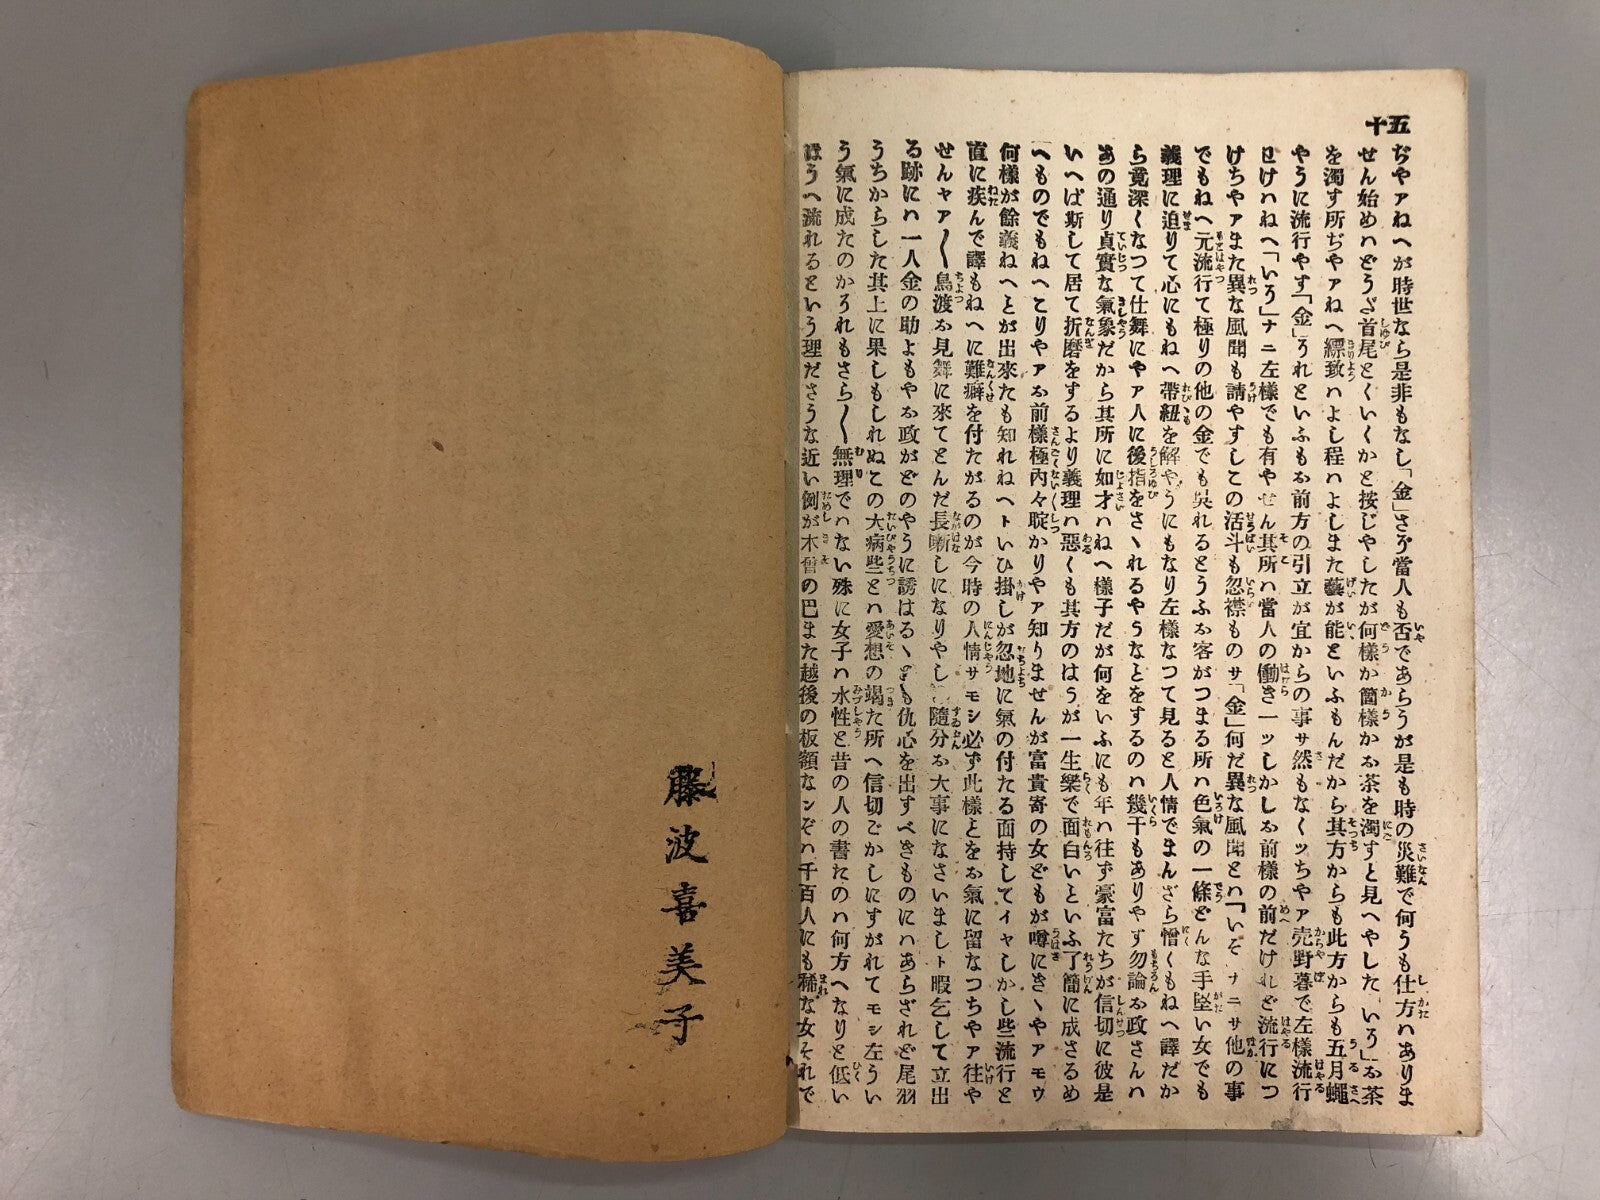 五十
ぢやァねへが時世なら是非もなし「金」さぞ當人も否であらうが是も時の災難で何うも仕方ハありま
せん始めハどうぞ首尾とくいくかと按じやしたが何様か箇様かお茶を濁すと見へやした「いろ」お茶
を濁す所ぢやァねへ縹致ハよし程ハよしまた藝が能といふもんだから其方からも此方からも五月蠅
やうに流行やす「金」うれといふもお前方の引立が宜からの事サ然もなくッちやァ売野暮で左様流行
ハねへ「いろ」ナニ左様でも有やせん其所ハ當人の働き一ッしかしお前様の前だけれど流行につ
けちやァまた異な風聞も請やすしこの活斗も忍襟ものサ「金」何だ異な風聞とハ「いろ」ナニサ他の事
でもねへ元流行て極りの他の金でも呉れるとうふお客がつまる所ハ色氣の一條どんな手堅い女でも
義理に迫りて心にもねへ帶紐を解やうにもなり左様なつて見ると人情でまんざら憎くもねへ譯だか
ら竟深くなつて仕舞にやァ人に後指をさゝれるやうなとをするのハ幾干もありやす勿論お政さんハ
あの通り貞實な氣象だから其所に如才ハねへ様子だが何をいふにも年ハ往ず豪富たちが信切に彼是
いへば斯して居て折磨をするより義理ハ惡くも其方のはうが一生樂で面白いといふ了簡に成さるめ
へものでもねへとりやァお前様極内々聢かりやァ知りませんが富貴寄の女どもが噂にきゝやァモウ
何様が餘義ねへとが出來たも知れねへトいひ掛しが忽地に氣の付たる面持してイヤしかし些流行と
直に疾んで譯もねへに難癖を付たがるのが今時の人情サモシ必ず此様とをお氣に留なつちやァ往や
せんヤァ〳〵鳥渡お見舞に來てとんだ長噺しになりやし 隨分お大事になさいましト暇乞して立出
る跡にハ一人金の助よもやお政がどのやうに誘はるゝとも仇心を出すべきものにハあらざれど尾羽
うちからした其上に果しもしれぬこの大病些とハ愛想の竭た所へ信切ごかしにすがれてモシ左うい
う氣に成たのかうれもさら〳〵無理でハない殊に女子ハ水性と昔の人の書たのハ何方へなりと低い
はうへ流れるという理ださうな近い例が木曾の巴また越後の板額なンぞハ千百人にも稀な女それで
藤波喜美子